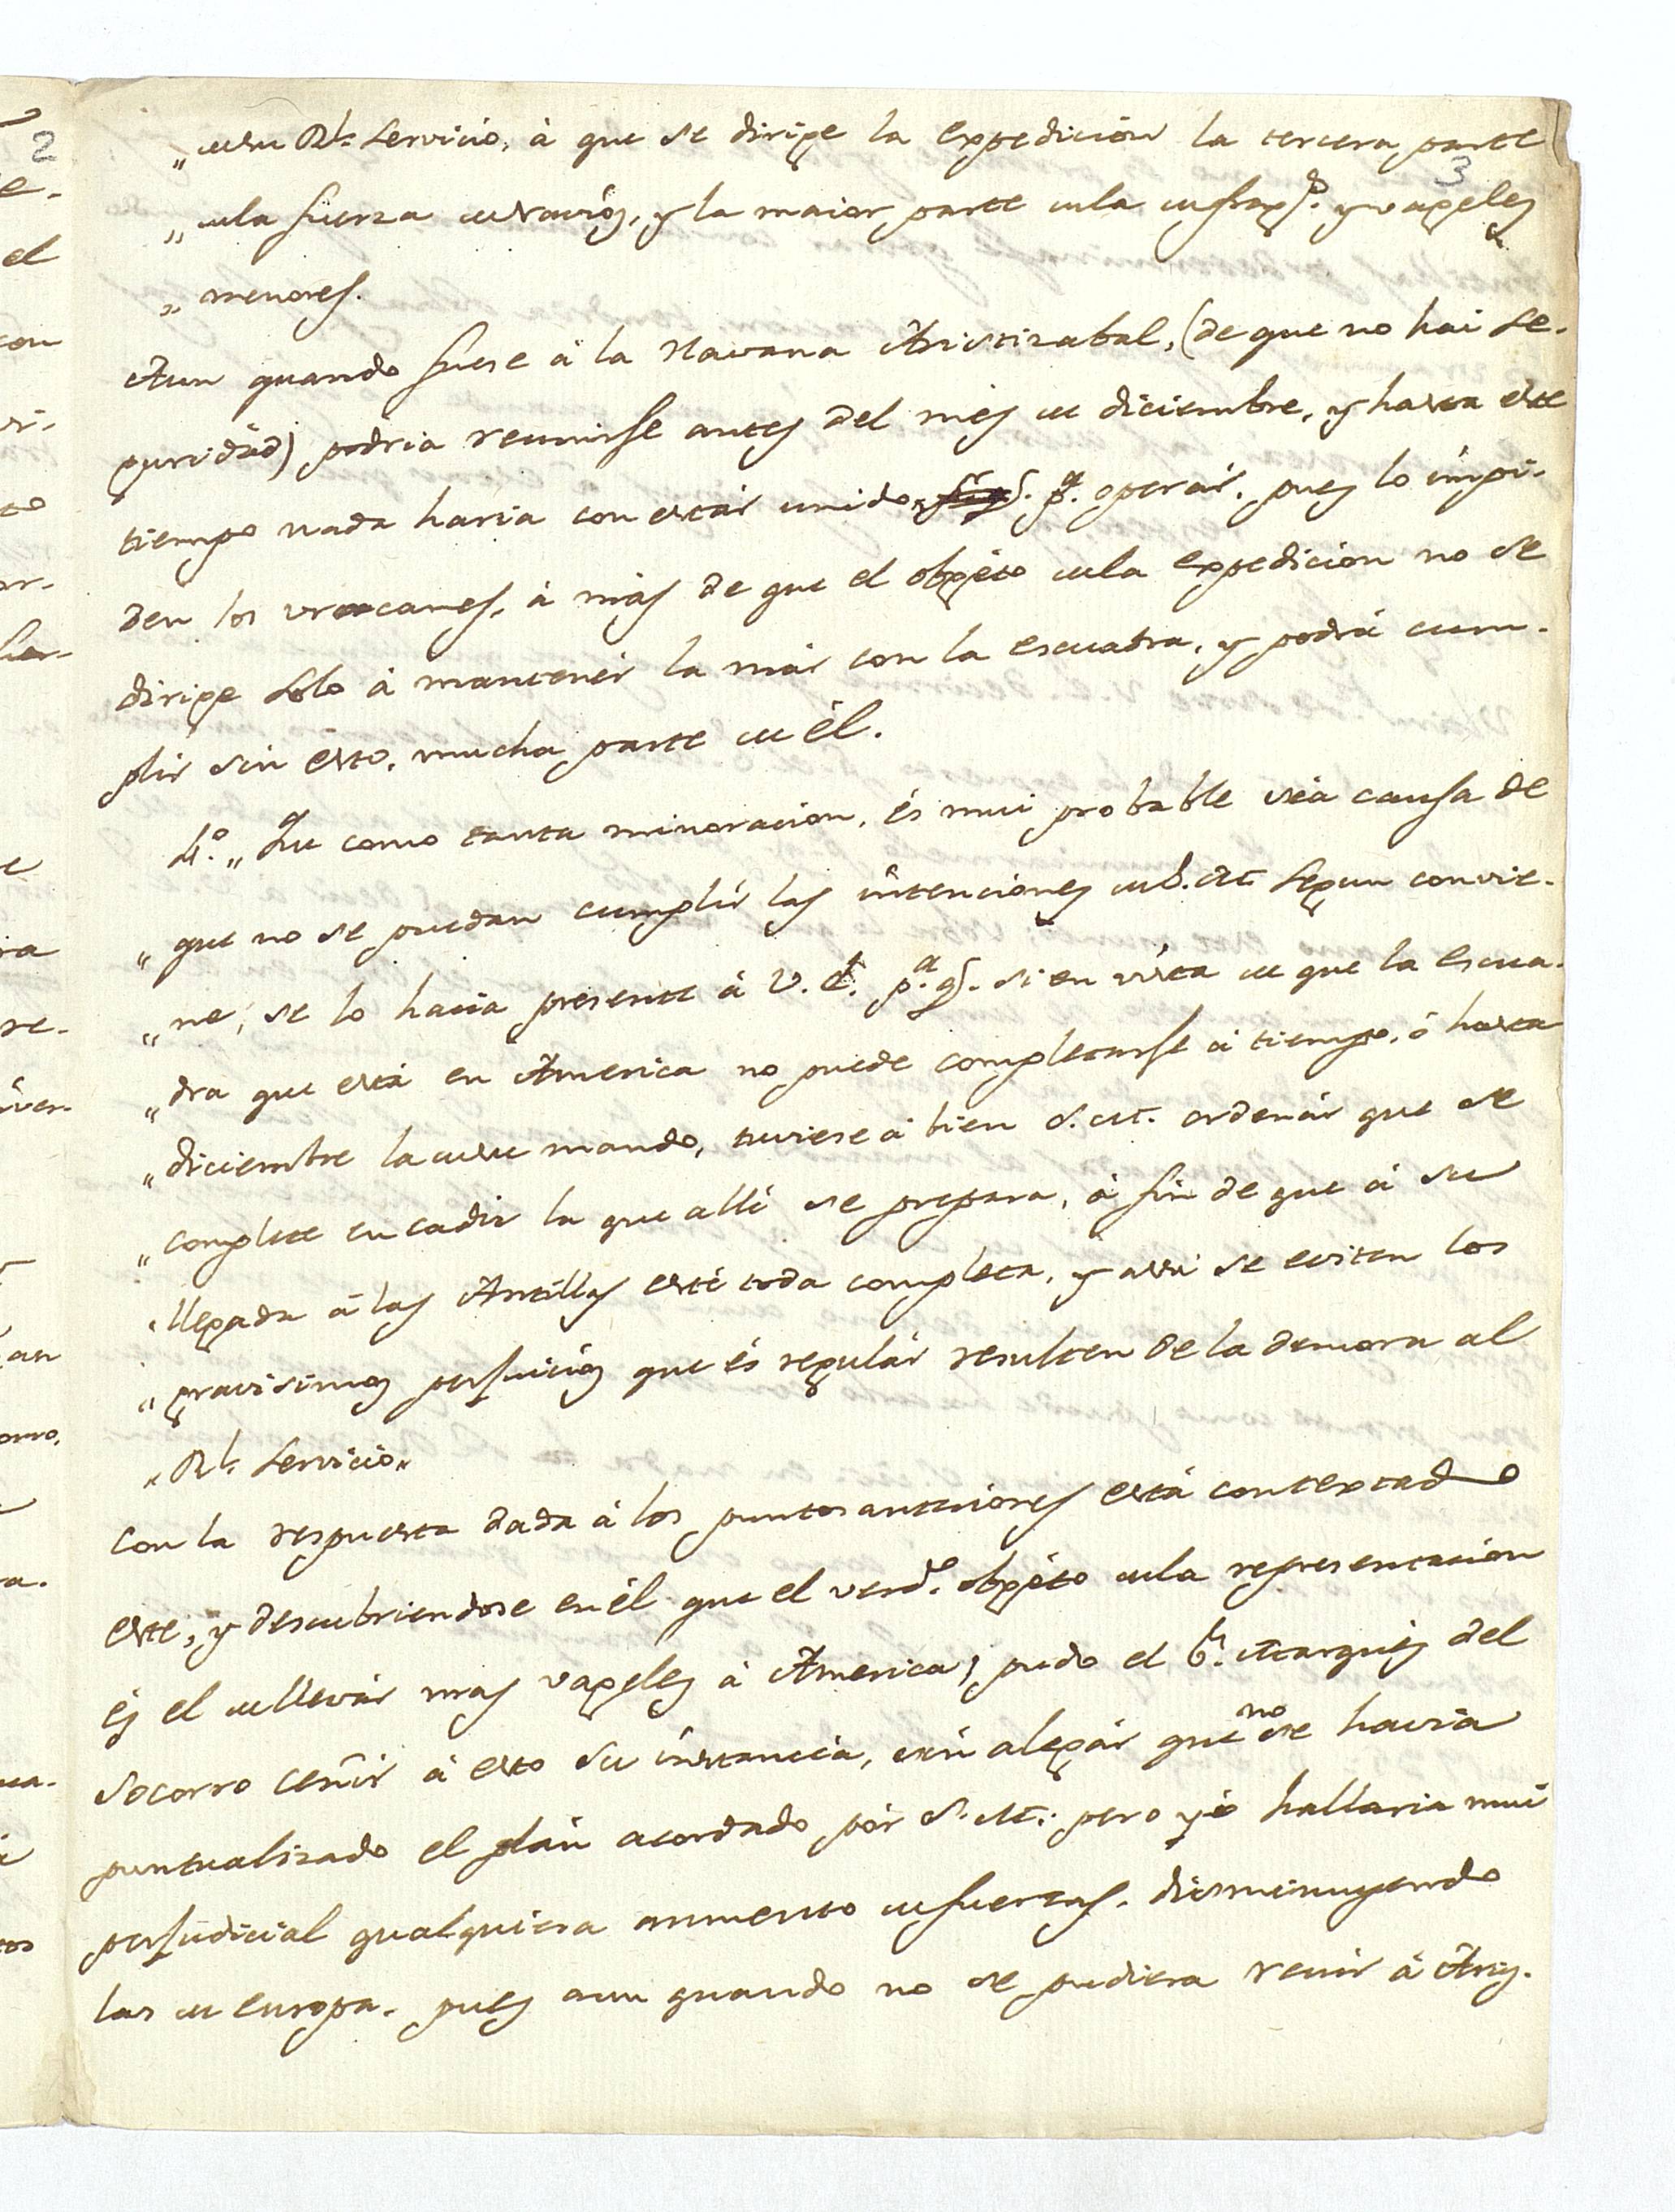 „ de su Rl. servicio, à que se dirige la expedicion la tercera parte
3
„ dela fuerza de navíos, y la maior parte dela de frags. y vageles
„ menores.
Aun quando fuese à la Havana Aristizabal, (de que no hai se-
guridàd) podria reunirse antes del mes de diciembre, y hasta este
tiempo nada haria con estàr unido, pa. operàr, pues lo impi-
den los uracanes, à màs de que el obgéto dela expedicion no se
dirige solo à mantenèr la màr con la escuadra, y podrà cum-
plir sin èsto, mucha parte de èl.
4o. „ Que como tanta minoracion, és mui probable séa causa de
„ que no se puedan cumplìr las intenciones de S. M. segun convie-
„ ne; se lo hacia presente à V. E. pa. qe. si en vista de que la escua-
„ dra que està en America no puede completarse à tiempo, ò hasta
„ diciembre la de su mando, tuviese à bien S. M. ordenàr que se
„ complete en cadiz la que allì se prepara, à fin de que à su
„ llegada à las Antillas esté toda completa, y assi se eviten los
„ gravisimos perjuicios que és regulàr resulten de la demora al
„ Rl. servicio„
Con la respuesta dada à los puntos anteriores està contextado
este, y descubriendose en èl que el verdo. obgéto dela representacion
és el de llevàr mas vageles à America, pudo el Sr. Marqués del
Socorro ceñir à esto su instancia, sin alegàr que no se havia
puntualizado el plàn acordado pòr S. M.: pero yò hallaria mui
perjudicial qualquiera aumento de fuerzas, disminuyendo
las de europa, pues aun quando no se pudiera reunir à Aris-